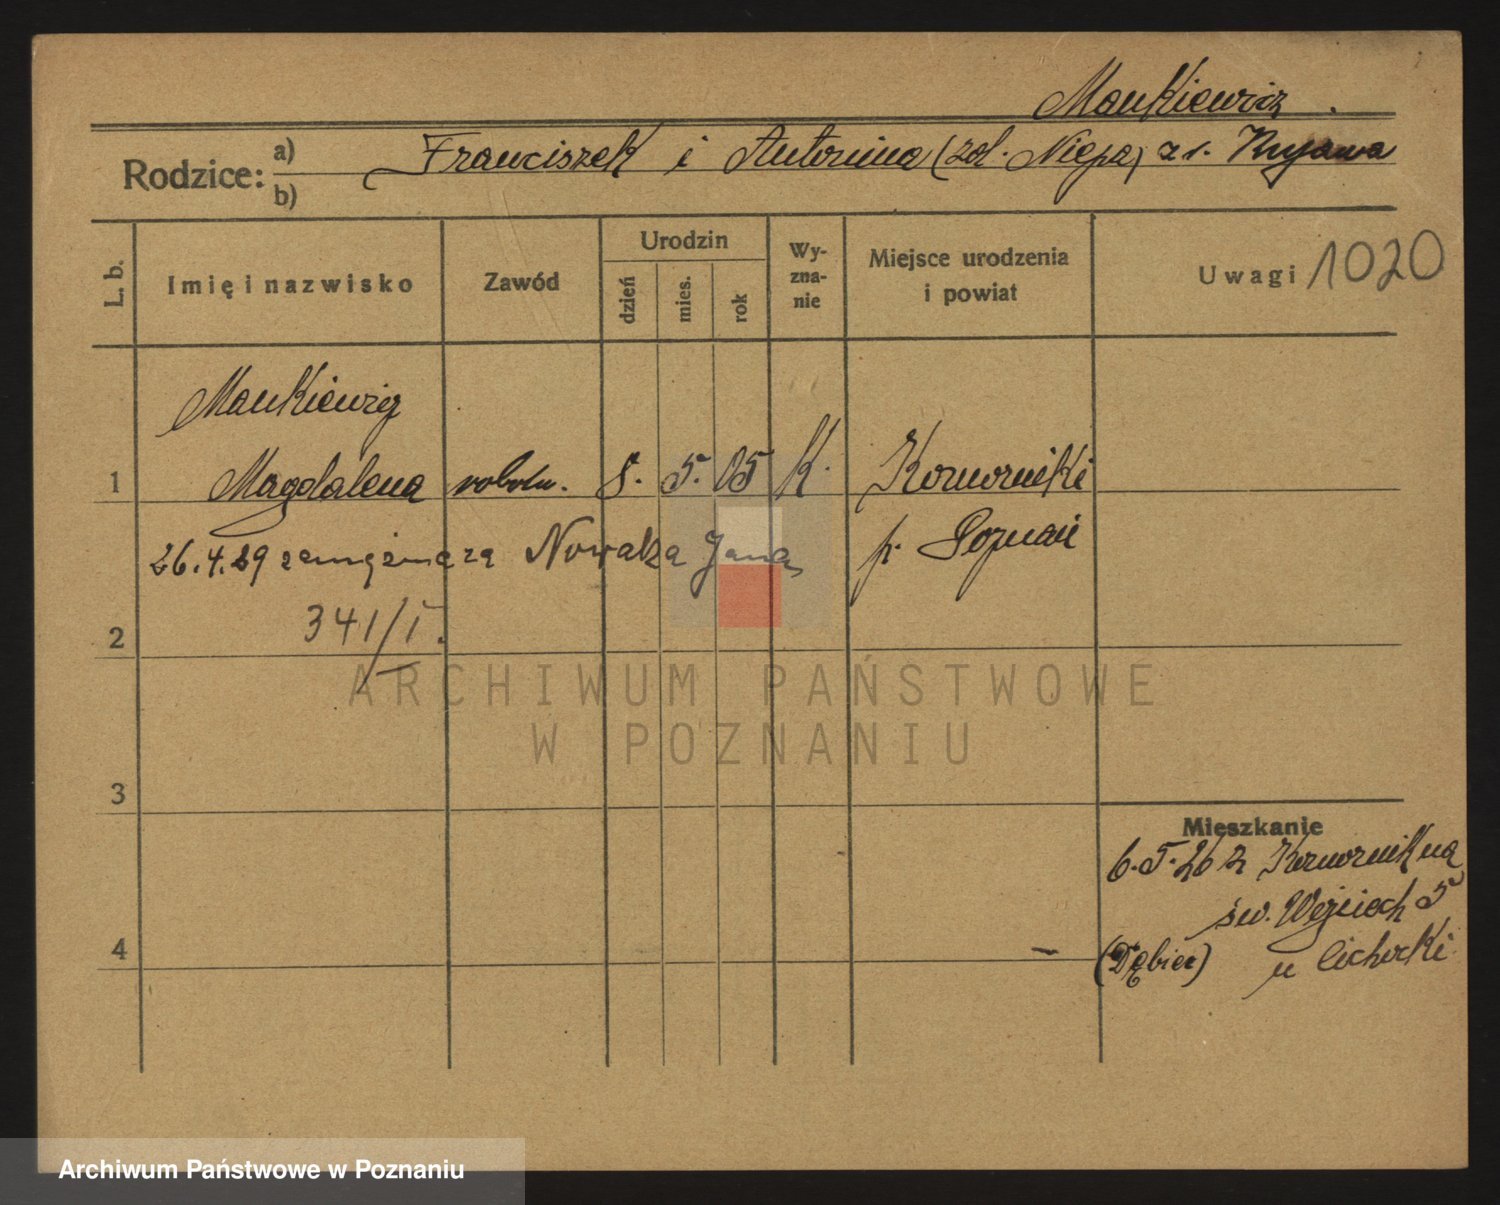 Mankiewicz.
Rodzice: a) Franciszek i Antonina (zd. Niepa) z r. Kujawa
b)
L. b.
Imię i nazwisko
Zawód
Urodzin
dzień
mies.
rok
Wy-
zna-
nie
Miejsce urodzenia
i powiat
Uwagi 1020
Mankiewicz
1 Magdalena robotn. 8. 5. 05 K. Komorniki
p. Poznań
26.4.29 zamężna za Nowaka Jana
2 341/I.
3
4
Mieszkanie
6.5.26 z Komornik na
św. Wojciech 5
(Dębiec) u Cichocki
ARCHIWUM PAŃSTWOWE
W POZNANIU
Archiwum Państwowe w Poznaniu